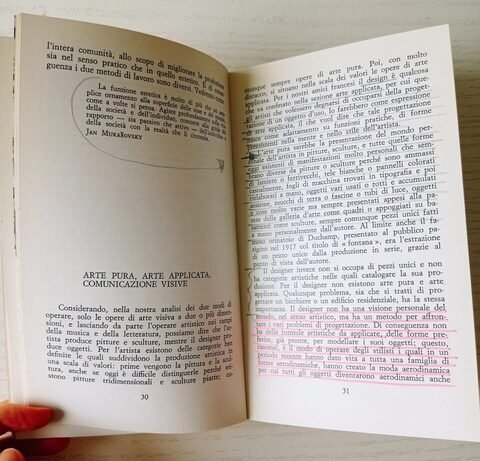 l'intera comunità, allo scopo di migliorare la produzione
sia nel senso pratico che in quello estetico. E di
guenza i due metodi di lavoro sono diversi. Vediamo come.
La funzione estetica è molto di più che un
plice ornamento alla superficie delle cose e del
come a volte si pensa. Agisce profondamente sulla
della società e dell'individuo, insieme alla guida del
rapporto — sia passivo che attivo — dell'individuo e
della società con la realtà che li circonda.
JAN MUKAŘOVSKÝ
ARTE PURA, ARTE APPLICATA,
COMUNICAZIONE VISIVE
Considerando, nella nostra analisi dei due modi di
operare, solo le opere di arte visiva a due o più dimen-
sioni, e lasciando da parte l'operatore artistico nei campi
della musica e della letteratura, possiamo dire che l'arti-
sta produce pitture e sculture, mentre il designer pro-
duce oggetti. Per l'artista esistono delle categorie ben
definite le quali suddividono la produzione artistica in
una scala di valori: prime vengono la pittura e la scul-
tura, anche se oggi è difficile distinguerle perché esi-
stono pitture tridimensionali e sculture piatte; co-
30
munque sempre opere di arte pura. Poi, con molto
distacco, si situano nella scala dei valori le opere di arte
applicata. Per i nostri amici francesi il design è qualcosa
che va coordinato nella sezione arte applicata, per cui que-
gli artisti che volessero degnarsi di occuparsi della proget-
tazione di un oggetto d'uso, lo farebbero come espressione
di arte applicata, il che vuol dire che tale progettazione
avviene come adattamento su funzioni pratiche, di forme
preesistenti nella mente e nello stile dell'artista.
L'arte pura sarebbe la presentazione del mondo per-
sonale dell'artista in pitture, sculture, e tutte quelle forme
oggi esistenti di manifestazioni molto personali che sem-
brano diverse da pitture e sculture perché sono ammassi
di lamiere o ferrivecchi, tele bianche o pannelli colorati
casualmente, fogli di macchina trovati in tipografia e poi
rielaborati a mano, oggetti vari usati o rotti e accumulati
insieme, mucchi di terra o fascine o tubi di luce, oggetti
e cose molto varie ma sempre presentati appesi alla pa-
rete della galleria d'arte come quadri o appoggiati su ba-
samenti come sculture, sempre comunque pezzi unici fatti
a mano personalmente dall'autore. Al limite anche il fa-
moso orinatoio di Duchamp, presentato ad una mostra
negli USA nel 1917 col titolo di « fontana », era l'estrazione
di un pezzo unico dalla produzione in serie, grazie al
punto di vista dell'autore.
Il designer invece non si occupa di pezzi unici e non
ha categorie artistiche nelle quali catalogare la sua pro-
duzione. Per il designer non esistono arte pura e arte
applicata. Qualunque problema, sia che si tratti di progettare
un bicchiere o un edificio residenziale, ha la stessa
importanza. Il designer non ha una visione personale del
mondo, nel senso artistico, ma ha un metodo per affron-
tare i vari problemi di progettazione. Di conseguenza non
ha delle formule artistiche da applicare, delle forme pre-
ferite, già pronte, per modellare i suoi oggetti; questo,
casomai, è il modo di operare degli stilisti i quali in un
periodo recente hanno dato vita a tutta una famiglia di
forme aerodinamiche, hanno creato la moda aerodinamica
per cui tutti gli oggetti diventarono aerodinamici anche
31